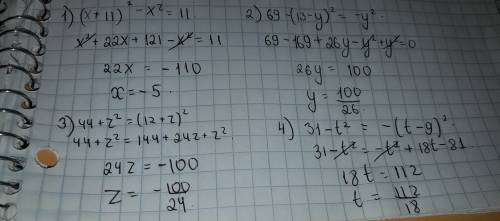 1) (x+11)² - x² = 11
x² + 22x + 121 - x² = 11
22x = -110
x = -5.
2) 69 - (13-y)² = -y².
69 - 169 + 26y - y² + y² = 0
26y = 100
y = 100/26
3) 44 + z² = (12+z)²
44 + z² = 144 + 24z + z²
24z = -100
z = -100/24
4) 31 - t² = -(t-9)²
31 - t² = -t² + 18t - 81
18t = 112
t = 112/18